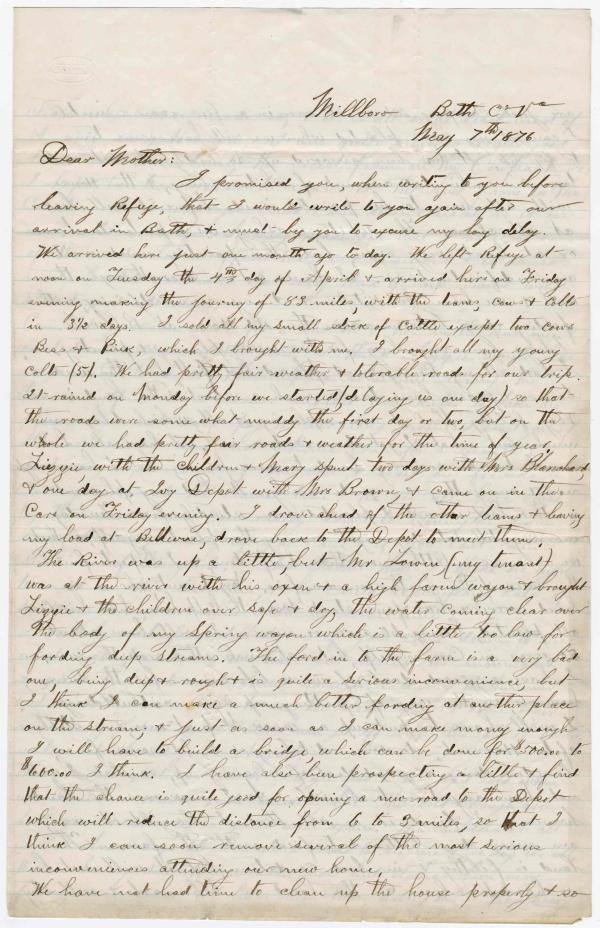 Millboro Bath Co Va
May 7th 1876
Dear Mother:
I promised you, when writing to you before
leaving Refuge, that I would write to you again after our
arrival in Bath, & must beg you to excuse my long delay.
We arrived here just one month ago to day. We left Refuge at
noon on Tuesday the 4th day of April & arrived here on Friday
evening making the journey of 83 miles, with the teams, cows & Colts
in 3½ days. I sold all my small stock of Cattle except two cows
Bess & Pink, which I brought with me. I brought all my young
Colts (5). We had pretty fair weather & tolerable roads for our trip.
It rained on Monday before we started (delaying us one day) so that
the roads were some what muddy the first day or two, but on the
whole we had pretty fair roads & weather for the time of year.
Lizzie, with the Children & Mary spent two days with Mrs Blanchard,
& one day at Ivy Depot with Mrs Brown, & came on in the
Cars on Friday evening. I drove ahead of the other teams & leaving
my load at Bellevue, drove back to the Depot to meet them.
The River was up a little, but Mr Lowen (my tenant)
was at the river with his oxen & a high farm wagon & brought
Lizzie & the children over safe & dry, the water coming clear over
the body of my Spring wagon which is a little too low for
fording deep streams. The ford in to the farm is a very bad
one, being deep & rough & is quite a serious inconvenience, but
I think I can make a much better fording at another place
on the stream, & just as soon as I can make money enough
I will have to build a bridge which can be done for $500.00 to
$600.00 I think. I have also been prospecting a little & find
that the chance is quite good for opening a new road to the Depot
which will reduce the distance from 6 to 3 miles, so that I
think I can soon remove several of the most serious
inconveniences attending our new home.
We have not had time to clean up the house properly & so